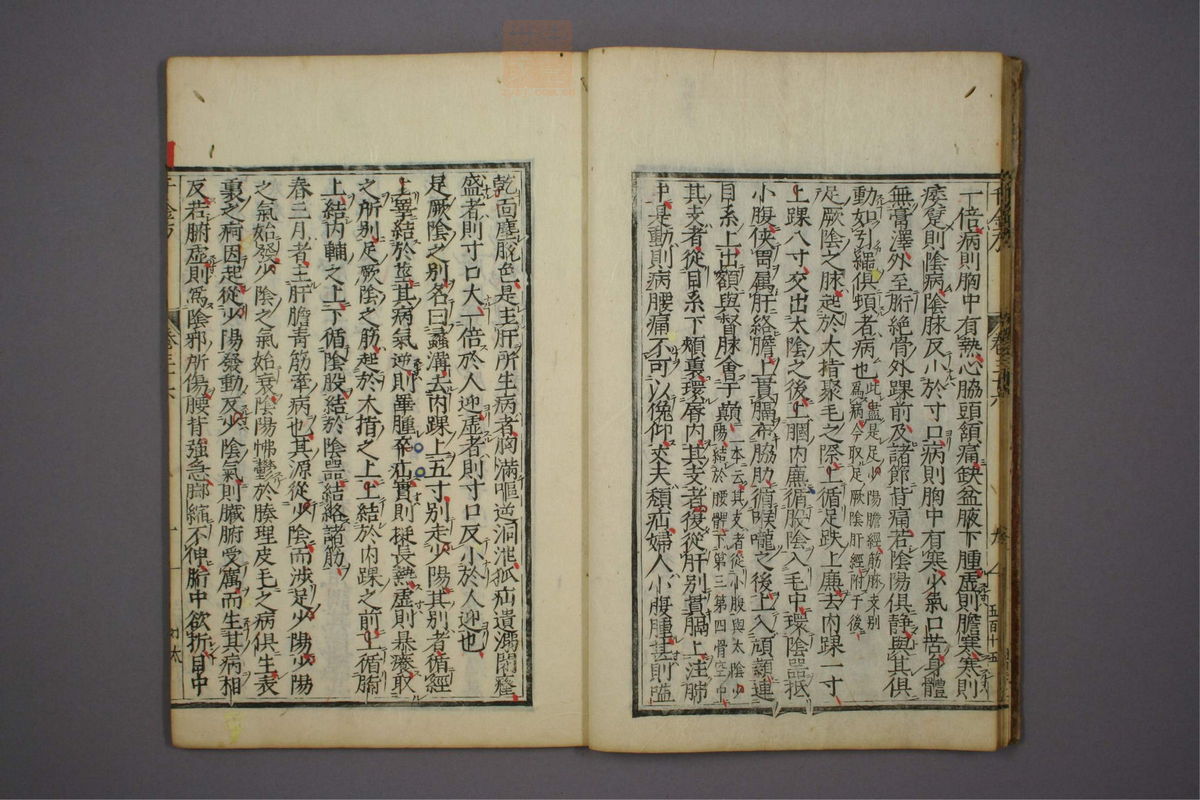 一倍病則胸中有熱心脇頭頷痛缺盆腋下腫虛則膽寒寒則
痿躄則陰病陰脉反小於寸口病則胸中有寒少氣口苦身體
無膏澤外至胻絶骨外踝前及諸節皆痛若陰陽俱静與其俱
動如引繩俱頓者病也此盡是足少陽膽經筋脉支別爲病今取足厥陰肝經附于後
足厥陰之脉起於大指聚毛之際上循足跌上廉去内踝一寸
上踝八寸交出太陰之後上膕内廉循股陰入毛中環陰器抵
小腹俠胃属肝絡膽上貫膈布脇肋循喉嚨之後上入頏顙連
目系上出額與督脉會于巔一本云其支者從小腹與太陰少陽結於腰髁下第三第四骨空中
其支者從目系下頰裏環唇内其支者復從肝別貫膈上注肺
中是動則病腰痛不可以俛仰丈夫㿗疝婦人小腹腫甚則嗌
乾面塵脱色是主肝所生病者胸滿嘔逆洞泄狐疝遺溺閉癃
盛者則寸口大一倍於人迎虛者則寸口反小於人迎也
足厥陰之別名曰蠡溝去内踝上五寸別走少陽其別者循經
上睪結於莖其病氣逆則睪腫卒疝實則挺長熱虛則暴癢取
之所別足厥陰之筋起於大指之上上結於内踝之前上循胻
上結内輔之上下循陰股結於陰器結絡諸筋
春三月者主肝膽青筋牽病也其源從少陰而涉足少陽少陽
之氣始發少陰之氣始衰陰陽怫鬱於腠理皮毛之病俱生表
裏之痾因起從少陽發動反少陰氣則臟腑受厲而生其病相
反若腑虛則爲陰邪所傷腰背强急脚縮不伸胻中欲折目中